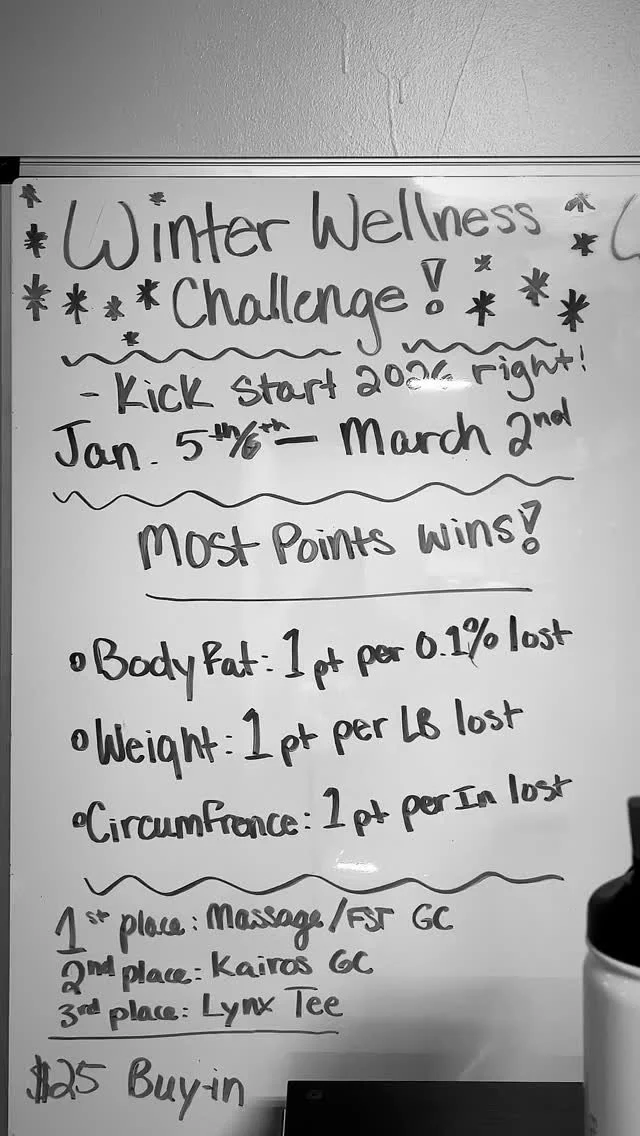 Winter Wellness
Challenge!
- Kick Start 2026 right!
Jan. 5th/6th - March 2nd
Most Points wins!
Body Fat: 1 pt per 0.1% lost
Weight: 1 pt per LB lost
Circumfrence: 1 pt per In lost
1st place: Massage/FST GC
2nd place: Kairos GC
3rd place: Lynx Tee
$25 Buy-in